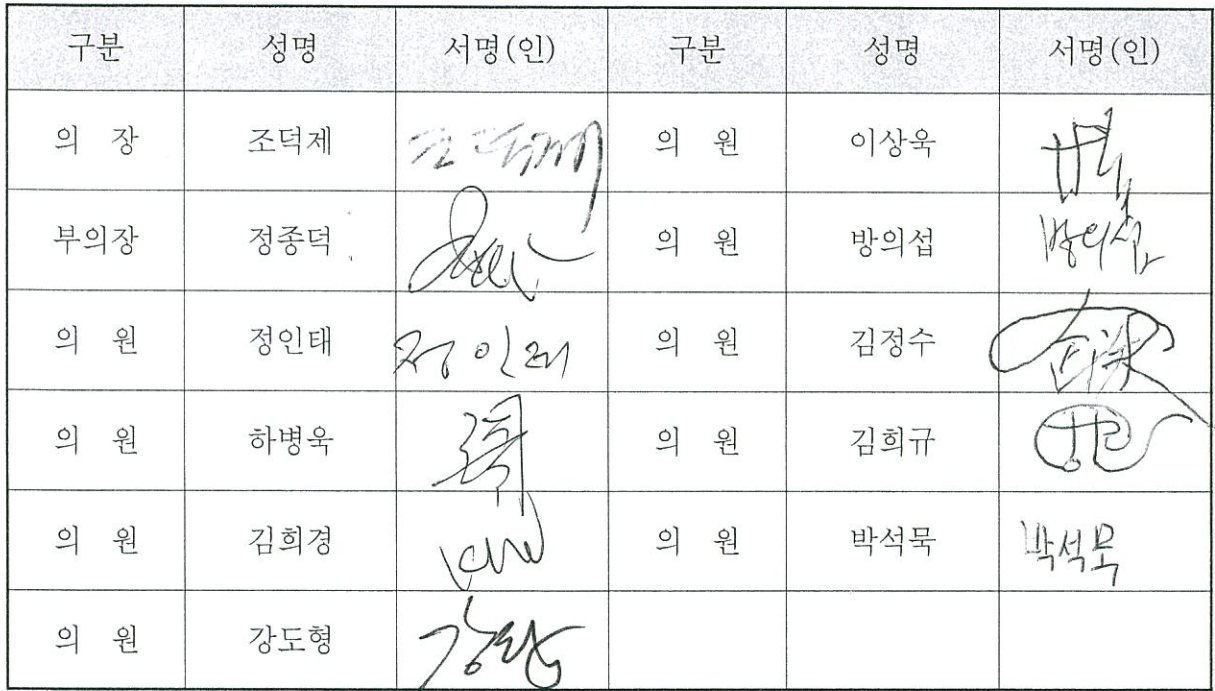 구분 성명 서명(인) 구분 성명 서명(인)
의 장 조덕제 조덕제 의 원 이상욱
부의장 정종덕 의 원 방의섭 방의섭
의 원 정인태 정인태 의 원 김정수
의 원 하병욱 의 원 김희규
의 원 김희경 의 원 박석묵 박석묵
의 원 강도형